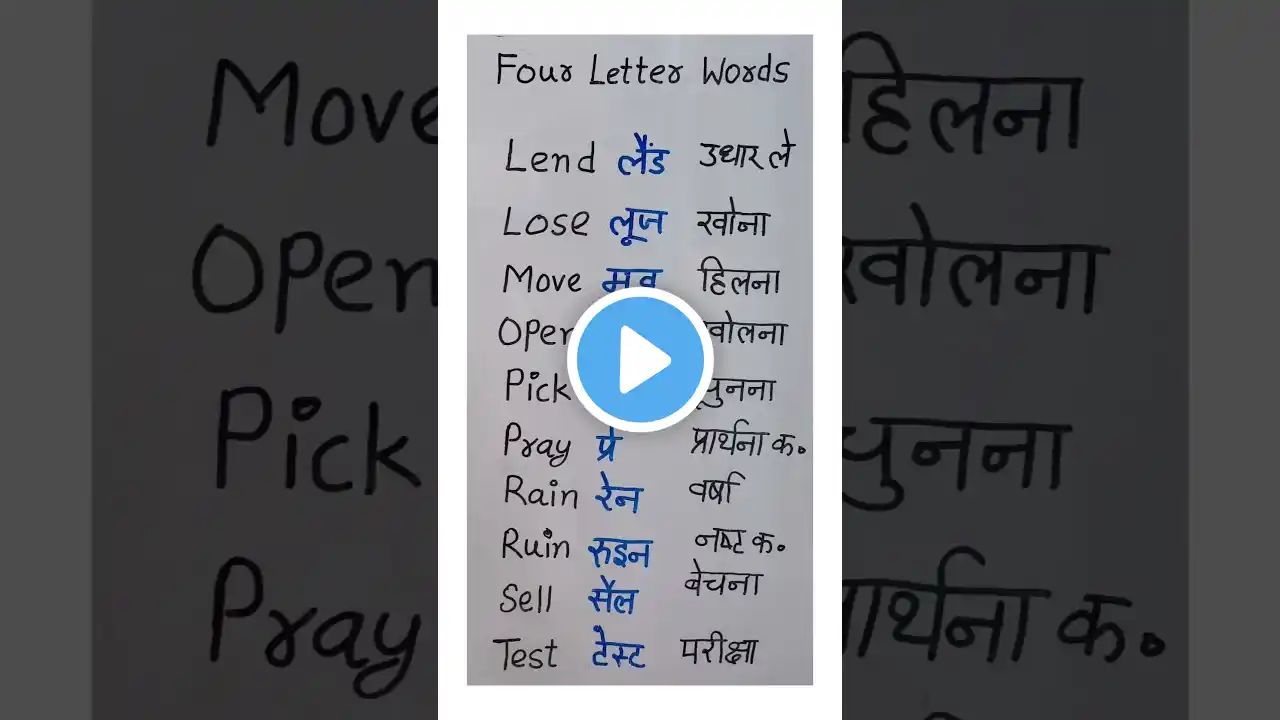 Four Letter Words
Lend लैंड उधार ले
Lose लूज खोना
Move मूव हिलना
Open खोलना
Pick चुनना
Pray प्रे प्रार्थना क.
Rain रेन वर्षा
Ruin रुइन नष्ट क.
Sell सैल बेचना
Test टेस्ट परीक्षा